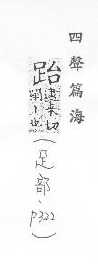 四聲篇海
跆
來切
也
(足部、p322)